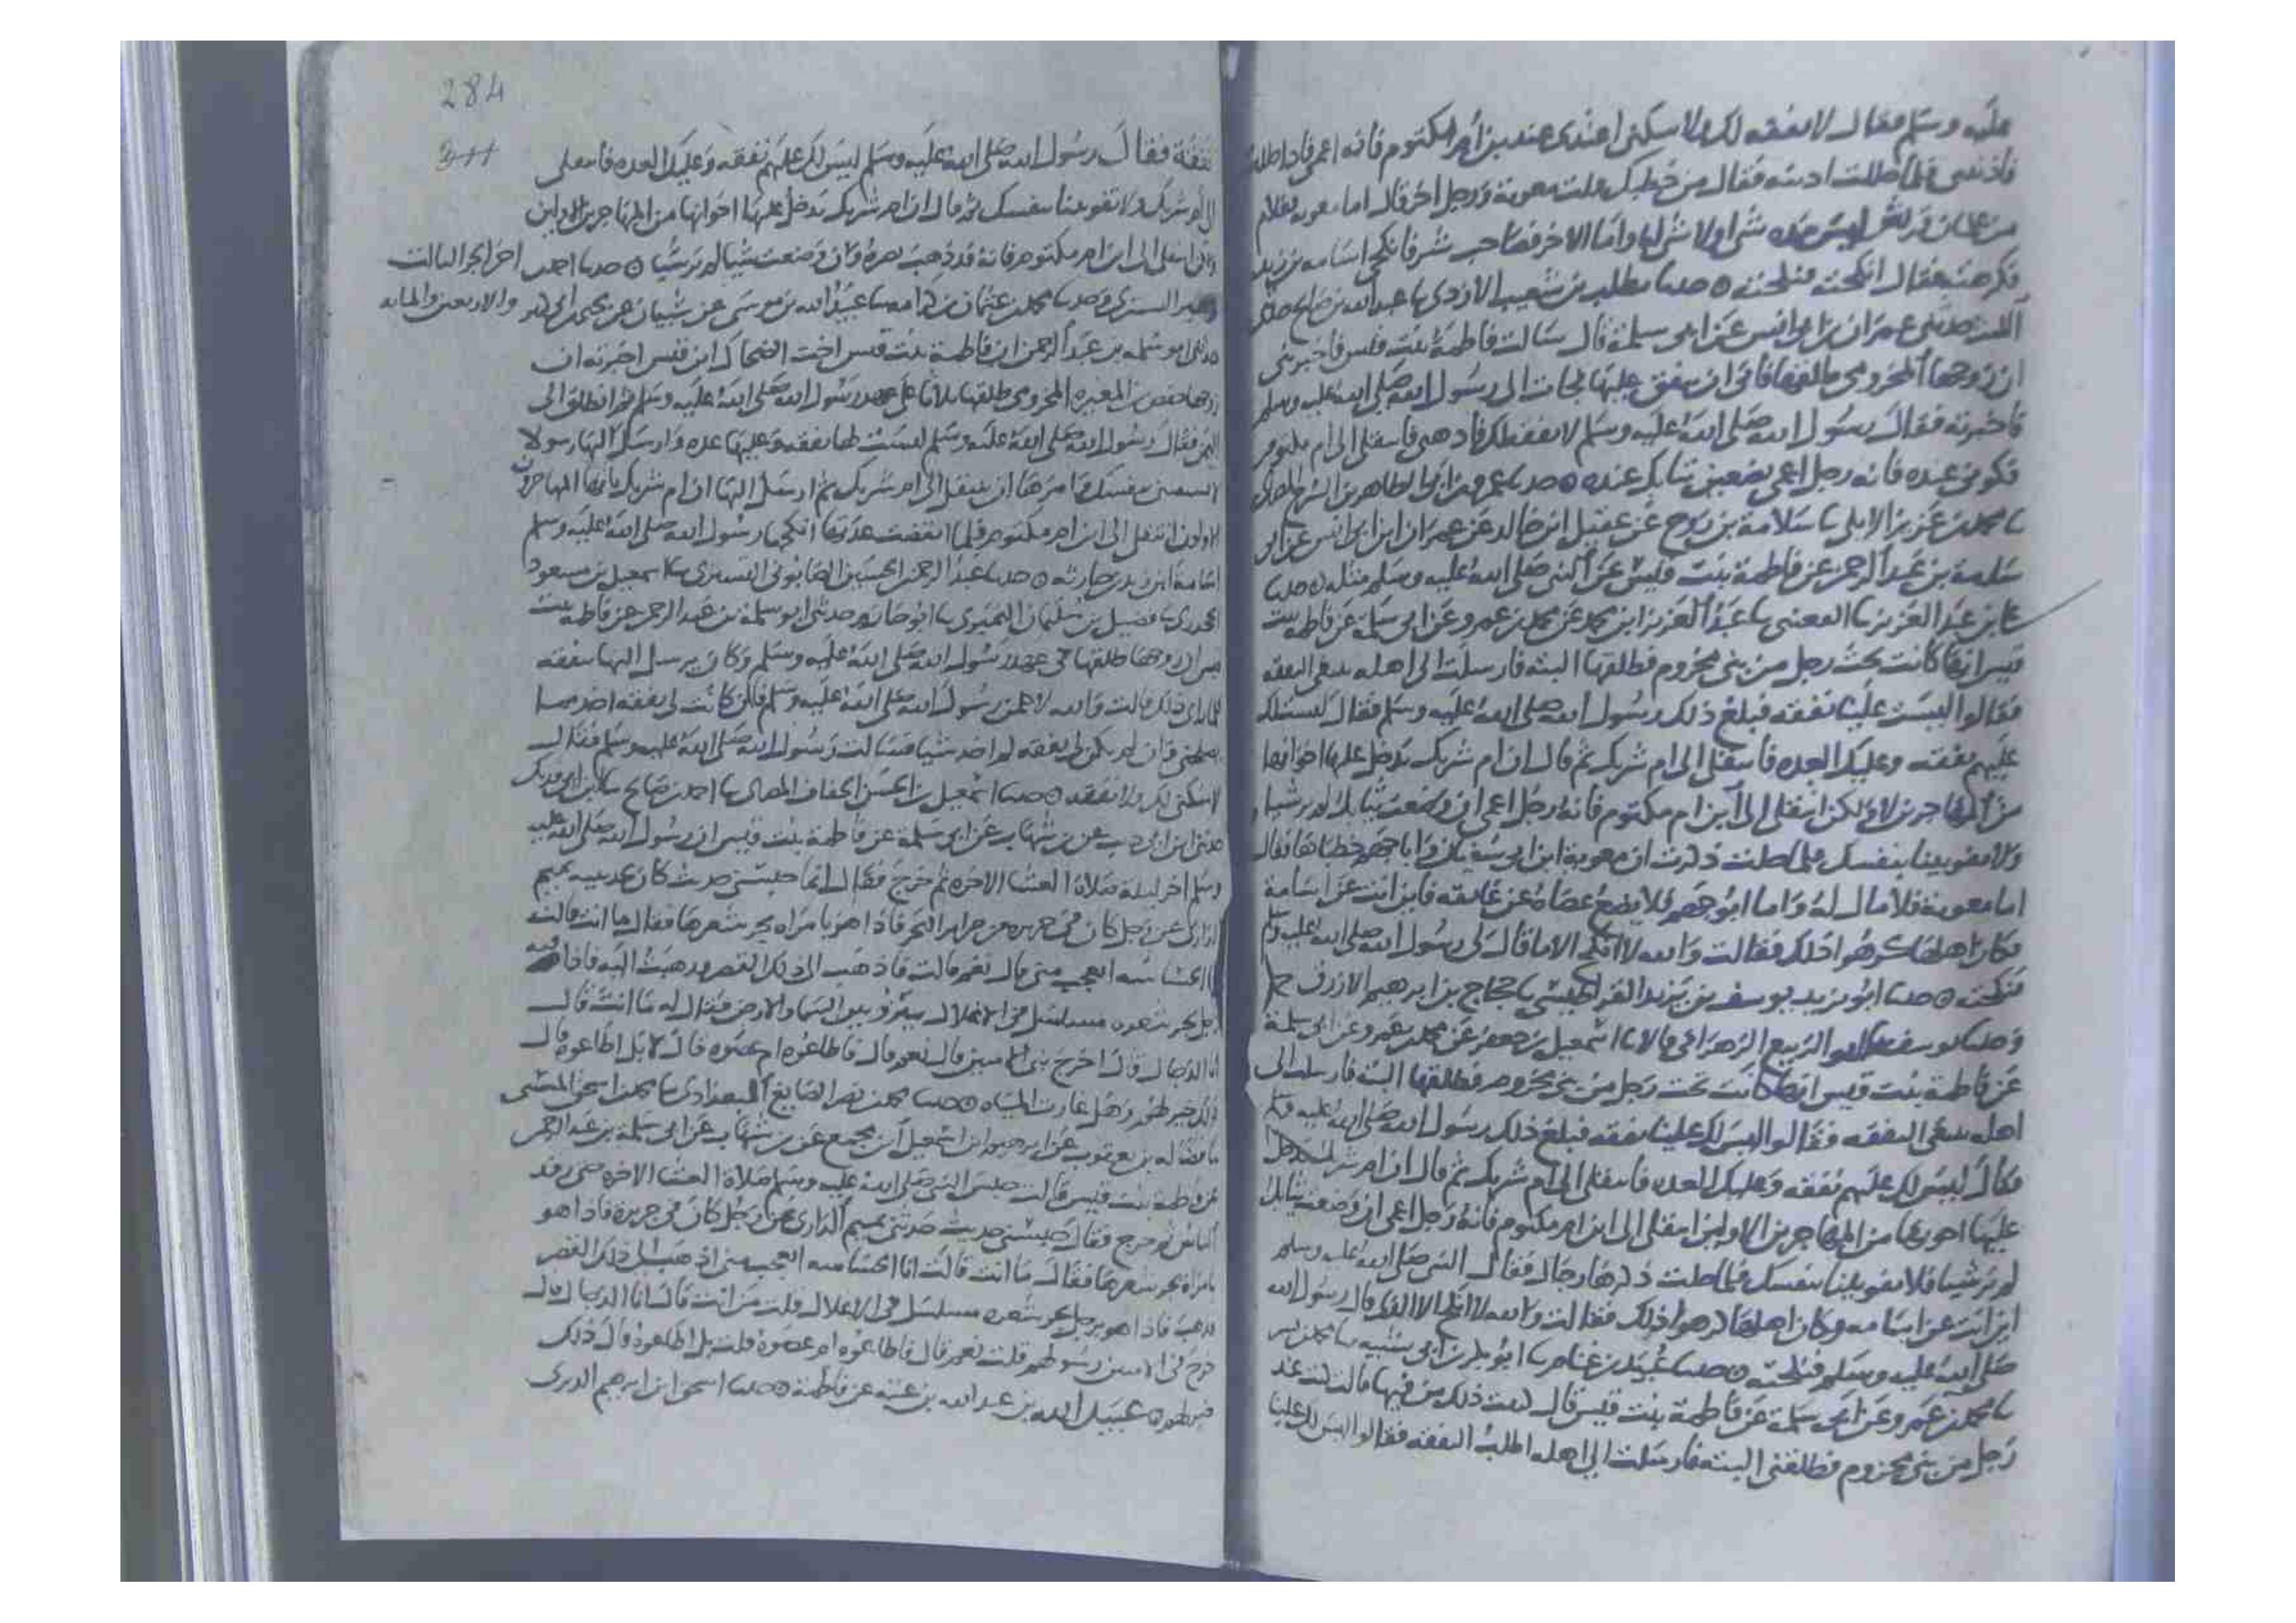 عليه وسلم فقال لا نفقه لك ولا سكنى اعتدى عند بن أم مكتوم فانه اعمى فاذا حللت
فاذنينى فلما حللت اذنته فقال من خطبك قلت معوية ورجل اخر قال اما معويه فغلام
من غلمان قريش ليس عنده شى اولا شى له واما الاخر فصاحب شر فانكحى اسامه بن زيد
فكرهته فقال انكحيه فنكحته حدثنا مطلب بن شعيب الازدى ثنا عبد الله بن صالح حدثنى
الليث حدثنى عمران بن ابى انس عن ابى سلمة قال سالت فاطمة بنت قيس فاخبرتنى
ان زوجها المخزومى طلقها فابى ان ينفق عليها فجات الى رسول الله صلى الله عليه وسلم
فاخبرته فقال رسول الله صلى الله عليه وسلم لا نفقه لك فاذهبى فانتقلى الى ام مكتوم
فكونى عنده فانه رجل اعمى تضعين ثيابك عنده حدثنا عمرو بن ابى الطاهر بن السرح المصرى
ثنا محمد بن عزيز الايلى ثنا سلامة بن روح عن عقيل ابن خالد عن عمران ابن ابى انس عن ابى
سلمة بن عبد الرحمن عن فاطمة بنت قيس عن النبى صلى الله عليه وسلم مثله حدثنا
على بن عبد العزيز ثنا القعنبى ثنا عبد العزيز ابن محمد عن محمد بن عمرو عن ابى سلمة عن فاطمة بنت
قيس انها كانت تحت رجل من بنى مخزوم فطلقها البته فارسلت الى اهله تبتغى النفقه
فقالوا ليست علينا نفقه فبلغ ذلك رسول الله صلى الله عليه وسلم فقال ليست لك
عليهم نفقه وعليك العده فانتقلى الى ام شريك ثم قال ان ام شريك يدخل عليها اخوانها
من المهاجرين الاول ولكن انتقلى الى ابن ام مكتوم فانه رجل اعمى ان وضعت ثيابك لم ير شيا
ولا تفوتينا بنفسك فلما حلت ذكرت ان معوية ابن ابى سفيان وابا جهم خطباها فقال
اما معوية فلا مال له واما ابو جهم فلا يضع عصاه عن عاتقه فاين انت عن اسامة
فكان اهلها كرهوا ذلك فقالت والله لا انكح الا ما قال لى رسول الله صلى الله عليه وسلم
فنكحته حدثنا ابو يزيد يوسف بن يزيد القراطيسى ثنا حجاج بن ابرهيم الازرق ح
وحدثنا يوسف ثنا ابو الربيع الزهرانى قالا ثنا اسمعيل بن جعفر عن محمد بن عمرو عن ابى سلمة
عن فاطمة بنت قيس انها كانت تحت رجل من بنى مخزوم فطلقها البته فارسلت الى
اهله تبتغى النفقه فقالوا ليس لك علينا نفقه فبلغ ذلك رسول الله صلى الله عليه وسلم
فقال ليس لك عليهم نفقه وعليك العده فانتقلى الى ام شريك ثم قال ان ام شريك يدخل
عليها اخوتها من المهاجرين الاولين انتقلى الى ابن ام مكتوم فانه رجل اعمى ان وضعت ثيابك
لم ير شيا فلا تفوتينا بنفسك فلما حلت ذكرها رجال فقال النبى صلى الله عليه وسلم
اين انت عن اسامه وكان اهلها كرهوا ذلك فقالت والله لا انكح الا الذى قال رسول الله
صلى الله عليه وسلم فنكحته حدثنا عبيد بن غنام ثنا ابو بكر بن ابى شيبه ثنا محمد بن بشر
ثنا محمد بن عمرو عن ابى سلمة عن فاطمة بنت قيس قال كتبت ذلك من فيها قالت كنت عند
رجل من بنى مخزوم فطلقنى البته فارسلت الى اهله اطلب النفقه فقالوا ليس لك علينا
284
311
نفقة فقال رسول الله صلى الله عليه وسلم ليس لك عليهم نفقه وعليك العده فانتقلى
الى ام شريك ولا تفوتينا بنفسك ثم قال ان ام شريك يدخل عليها اخوانها من المهاجرين الاولين
ولكن انتقلى الى ابن ام مكتوم فانه قد ذهب بصره وان وضعت شيا لم ير شيا حدثنا احمد
اخر الجز الثالث
ابن زهير التسترى وحدثنا محمد بن عثمان بن كرامه ثنا عبيد الله بن موسى عن شيبان عن يحيى
والاربعين والمايه
حدثنى ابو سلمه بن عبد الرحمن ان فاطمة بنت قيس اخت الضحاك ابن قيس اخبرته ان
زوجها حفص بن المغيره المخزومى طلقها ثلاثا على عهد رسول الله صلى الله عليه وسلم ثم انطلق الى
اليمن فقال رسول الله صلى الله عليه وسلم ليست لها نفقه وعليها عده وارسل اليها رسولا
لا تسبقينى بنفسك وامرها ان تنتقل الى ام شريك ثم ارسل اليها ان ام شريك ياتيها المهاجرون
الاولون انتقلى الى ابن ام مكتوم فلما انقضت عدتها انكحها رسول الله صلى الله عليه وسلم
اسامة ابن زيد بن حارثه حدثنا عبد الرحمن ابن الحسين الصابونى التسترى ثنا اسمعيل بن مسعود
الجحدرى ثنا فضيل بن سليمان النميرى ثنا ابو حازم حدثنى ابو سلمة بن عبد الرحمن عن فاطمة بنت
قيس ان زوجها طلقها فى عهد رسول الله صلى الله عليه وسلم وكان يرسل اليها نفقه
فلما راى ذلك قالت والله لاعلمن رسول الله صلى الله عليه وسلم فان كانت لى نفقه اخذت ما
يصلحنى وان لم يكن لى نفقه لم اخذ شيا فسالت رسول الله صلى الله عليه وسلم فقال
لا سكنى لك ولا نفقه حدثنا اسمعيل بن الحسن الخفاف المصرى ثنا احمد بن صالح ثنا ابن ابى فديك
حدثنى ابن ابى ذيب عن بن شهاب عن ابى سلمة عن فاطمة بنت قيس ان رسول الله صلى الله عليه
وسلم اخر ليلة صلاة العشا الاخره ثم خرج فقال انما حبسنى حديث كان يحدثنيه تميم
الدارى عن رجل كان فى جزيره من جزاير البحر فاذا هو بامراه تجر شعرها فقال ما انت قالت
انا الجساسه اتعجب منى قال نعم قالت فاذهب الى ذلك القصر فذهبت اليه فاذا فيه
رجل يجر شعره مسلسل فى الاغلال ينزو بين السما والارض فقال له ما انت قال
انا الدجال قال اخرج نبى الاميين قال نعم قال فاطاعوه ام عصوه قال لا بل اطاعوه قال
ذلك خير لهم وهل غارت المياه حدثنا محمد بن نصر الصايغ البغدادى ثنا محمد بن اسحق المسيبى
ثنا فضاله بن يعقوب عن ابرهيم ابن اسمعيل بن مجمع عن بن شهاب عن ابى سلمة بن عبد الرحمن
عن فاطمة بنت قيس قالت حبس النبى صلى الله عليه وسلم صلاة العشا الاخره حتى رقد
الناس ثم خرج فقال حبسنى حديث حدثنى تميم الدارى عن رجل كان فى جزيرة فاذا هو
بامراة تجر شعرها فقال ما انت قالت انا الجساسه اتعجب منى اذهب الى ذلك القصر
فذهب فاذا هو برجل يجر شعره مسلسل فى الاغلال قلت من انت قال انا الدجال قال
خرج نبى الاميين رسولهم قلت نعم قال فاطاعوه ام عصوه قلت بل اطاعوه قال ذلك
خير لهم عبيد الله بن عبد الله بن عتبة عن فاطمة حدثنا اسحق ابن ابرهيم الدبرى